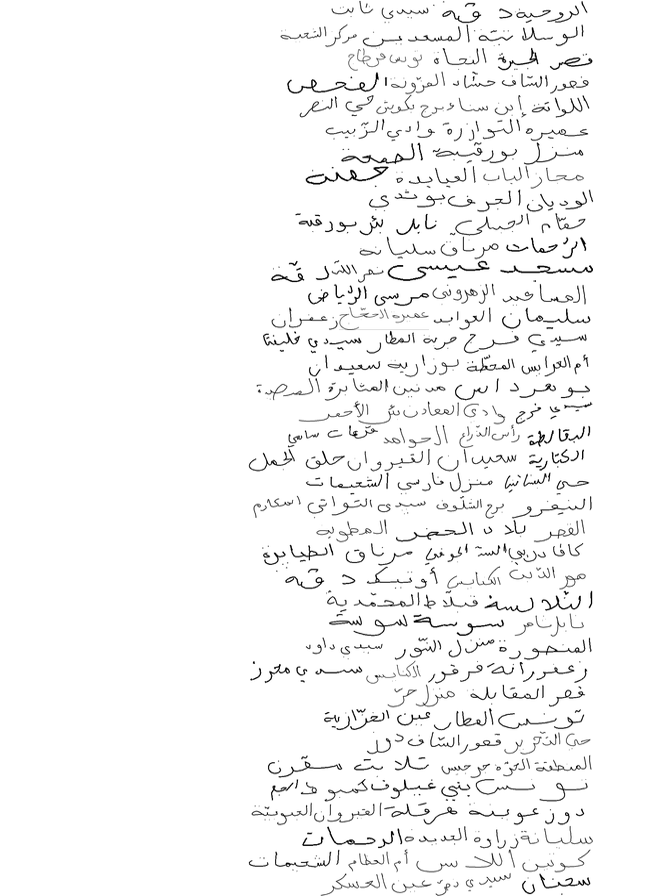 الروحية دڨة سيدي ثابت
الوسلاتية المسعدين مركز الشعبة
قصر الجيرة النجاة تونس قرطاج
قصور الساف حشاد العزونة الفحص
اللواتة إبن سناء برج بكوش حي النصر
عميرة التوازرة وادي الزبيب
منزل بورقيبة الصمعة
مجاز الباب العيايدة جفنة
الوديان الجرف بوثدي
حمّام الجبلي نابل بئر بورقبة
الرحمات مرناق سليانة
مسجد عيسى دڨة
المساعيد الزهروني مرسى الرياض
سليمان العوابد عميرة الحجّاج زعفران
سيدي فرج جربة العطار سيدي خليفة
أم العرايس المحطّة بوزارية سعيدان
بومرداس مدنين المثابرة
سيدي فرج وادي المعادن بئر الأحمر
البقالطة رأس الذراع الحوامد
الكبّارية سعيدان القيروان حلق الجمل
منزل فارسي الشعيمات
النيفرو برج الشلوف سيدي التواتي
القصر بلاد الحضر المطوية
مرناق الطيايرة
هور الكنايس أوتيك دڨة
الثلالسة قبلاط المحمّدية
سوسة سوسة
المنصورة منزل النّور سيدي داود
زعفرانة قرقور الكنايس سيدي محرز
قصر المقابلة منزل حرّ
تونس العطار عين الغزازية
حي التحرير قصور الساف دوز
المنطقة الحرّة جرجيس تلابت مڨرن
تونس بني غيلوف
دوز عوينة هرقلة القيروان العيونيّة
سليانة زرارة الجديدة الرحمات
كونس اللاس أم العظام الشعيمات
سجنان سيدي عين العسكر